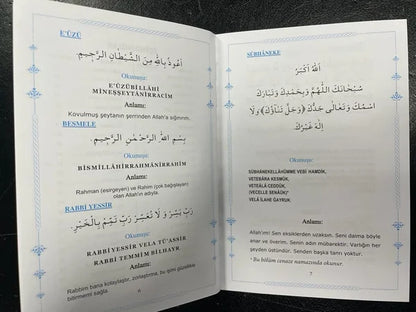 E'ÛZÜ
اَعُوذُ بِاللّٰهِ مِنَ الشَّيْطَانِ الرَّجِيمِ
Okunuşu:
E'ÛZÜBİLLÂHİ
MİNEŞŞEYTÂNİRRACÎM
Anlamı:
Kovulmuş şeytanın şerrinden Allah'a sığınırım.
BESMELE
بِسْمِ اللّٰهِ الرَّحْمٰنِ الرَّحِيمِ
Okunuşu:
BİSMİLLÂHİRRAHMÂNİRRAHÎM
Anlamı:
Rahman (esirgeyen) ve Rahim (çok bağışlayan)
olan Allah'ın adıyla.
RABBİ YESSİR
رَبِّ يَسِّرْ وَلَا تُعَسِّرْ رَبِّ تَمِّمْ بِالْخَيْرِ
Okunuşu:
RABBİ YESSİR VELA TÜ'ASSİR
RABBİ TEMMİM BİLHAYR
Anlamı:
Rabbim bana kolaylaştır, zorlaştırma, bu işimi güzellikle
bitirmemi sağla.
6
SÜBHÂNEKE
اَللّٰهُ اَكْبَرُ
سُبْحَانَكَ اللّٰهُمَّ وَبِحَمْدِكَ وَتَبَارَكَ
اسْمُكَ وَتَعَالٰى جَدُّكَ (وَجَلَّ ثَنَاؤُكَ) وَلَا
اِلٰهَ غَيْرُكَ
Okunuşu:
SÜBHÂNEKELLÂHÜMME VEBİ HAMDİK,
VETEBÂRA KESMÜK,
VETEÂLÂ CEDDÜK,
(VECELLE SENÂÜK)*
VELÂ İLAHE GAYRUK.
Anlamı:
Allah'ım! Sen eksiklerden uzaksın. Seni daima böyle
anar ve överim. Senin adın mübarektir. Varlığın her
şeyden üstündür. Senden başka tanrı yoktur.
* Bu bölüm cenaze namazında okunur.
7